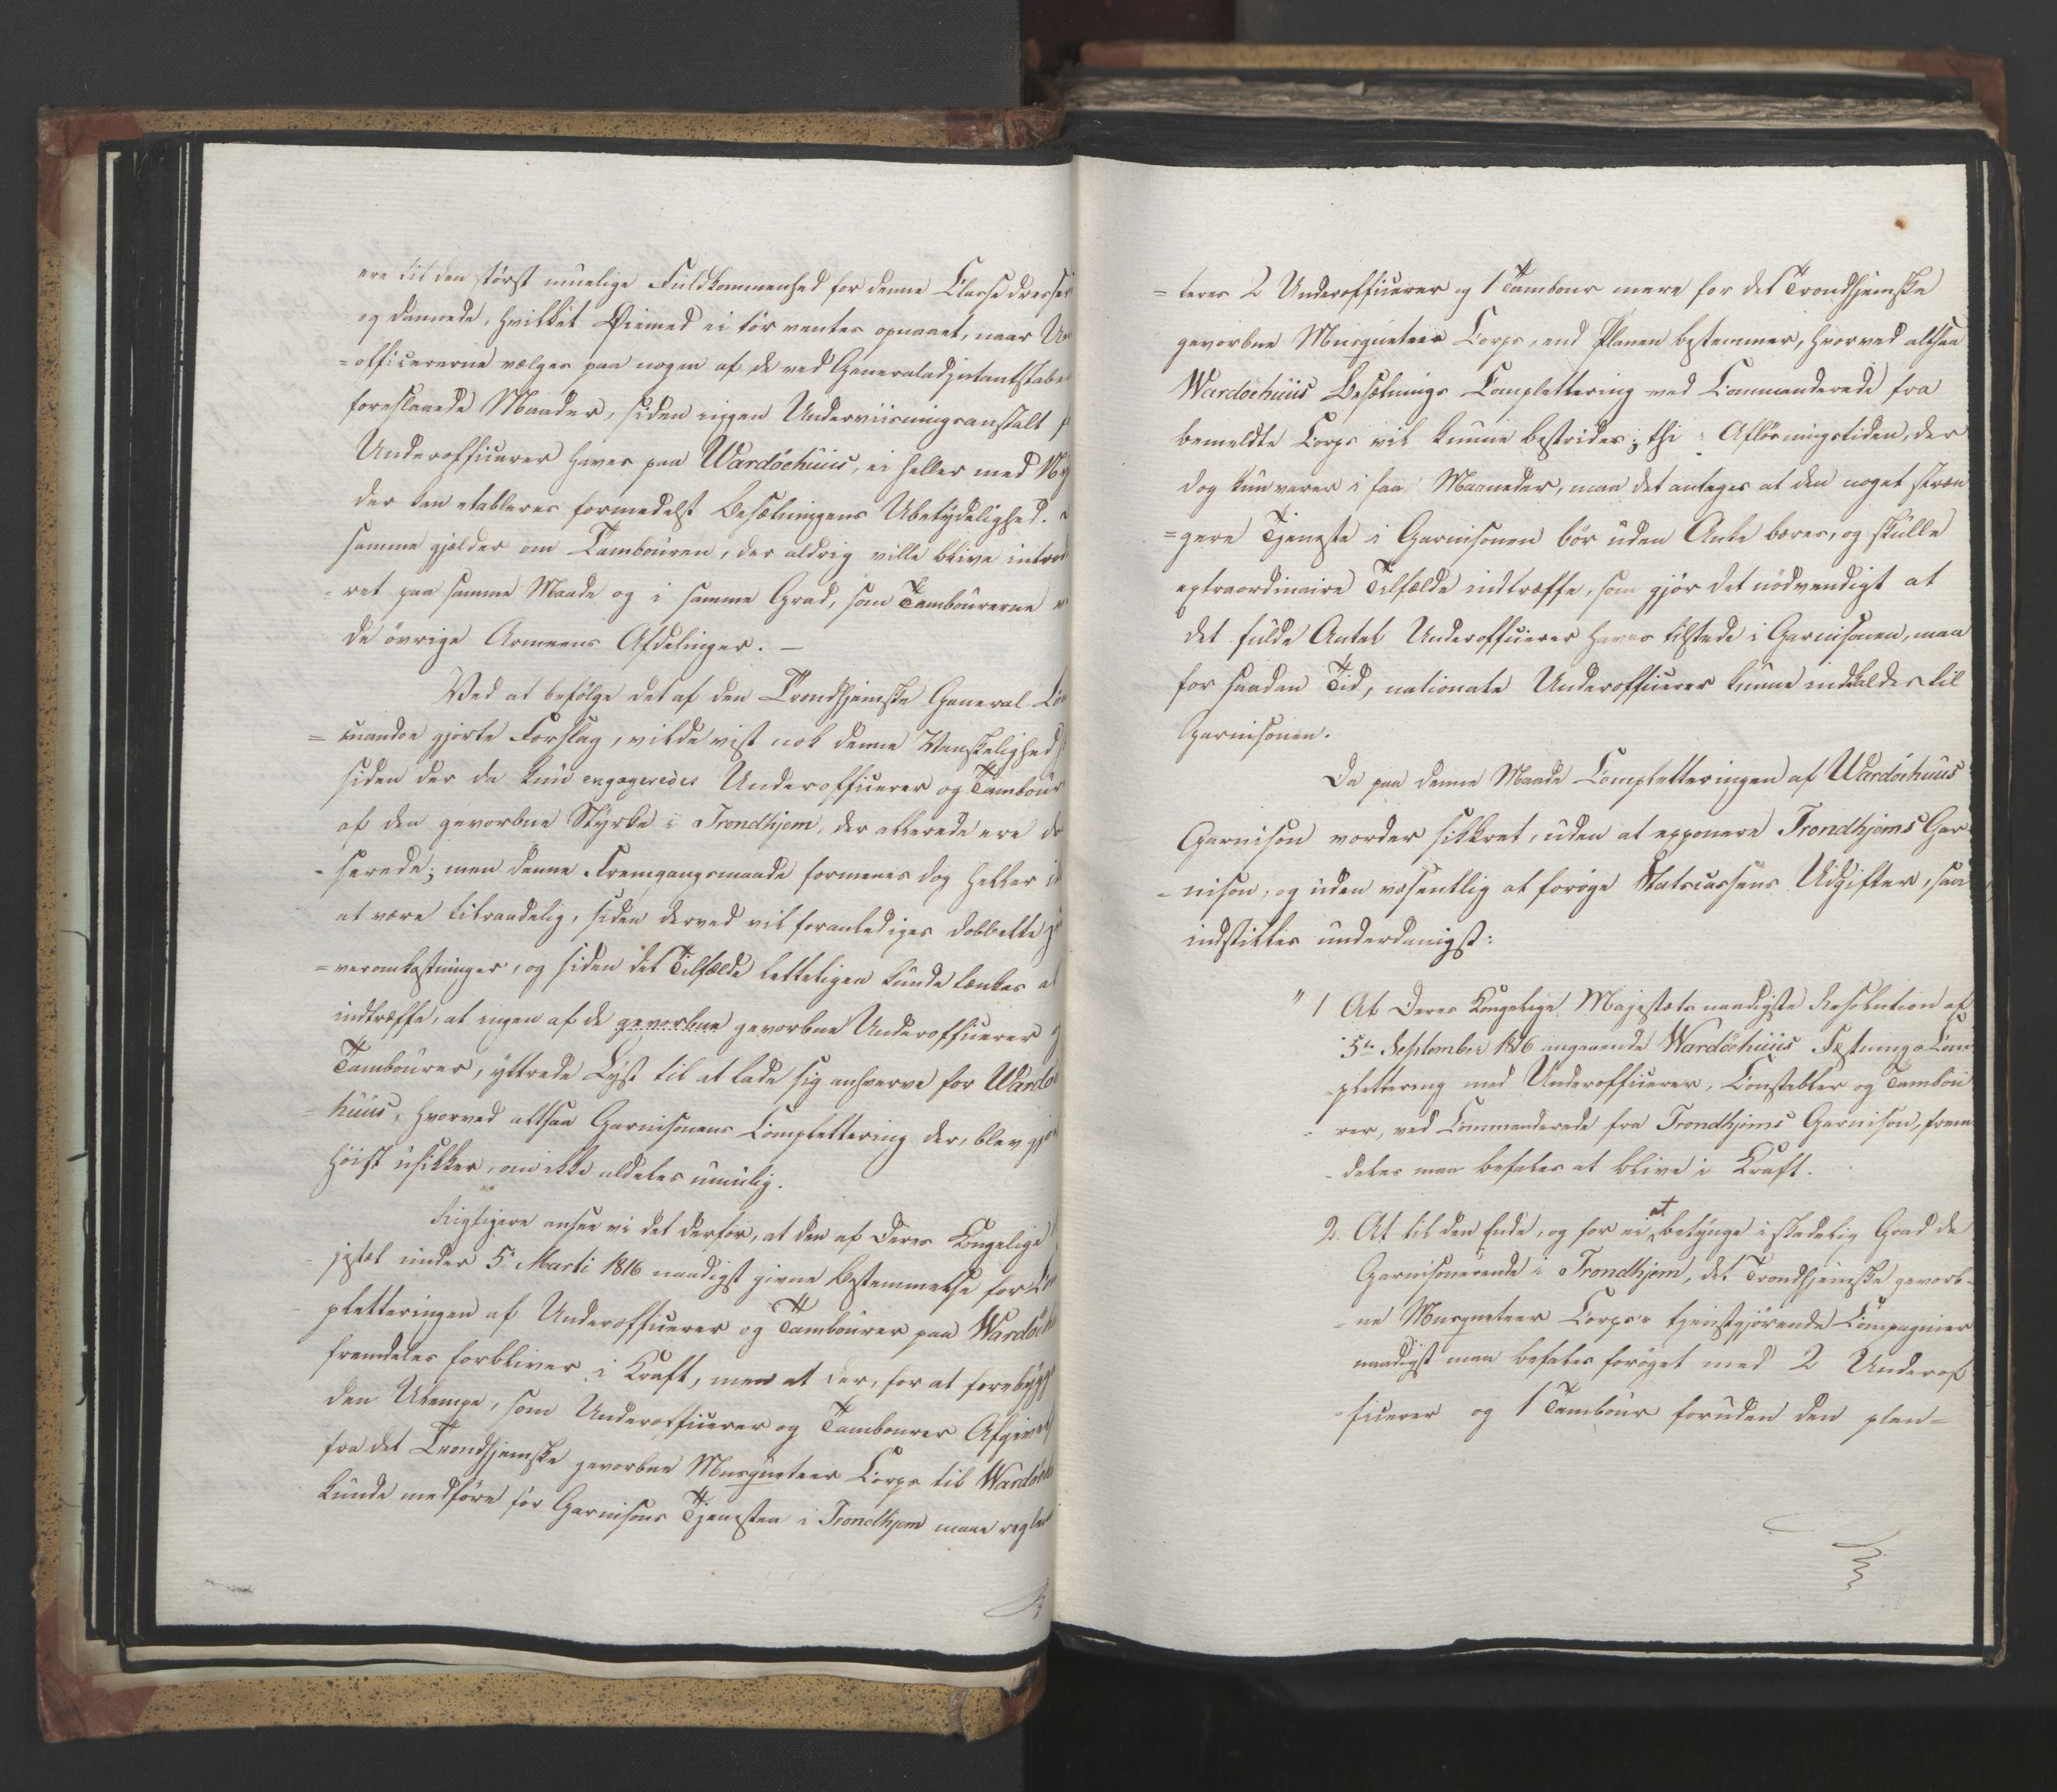 ere til den størst muelige Fuldkommenhed for denne Classe dresser
og dannede, hvilket Øiemed ei tør ventes opnaaet, naar Un
=officererne vælges paa nogen af de ved Generaladjutantstaben
foreslaaede Maader, siden ingen Underviisningsanstalt f
Underofficerer haves paa Wardöehuus, ei heller med Ny
der kan etableres formedelst Besætningens Ubetydelighed.
samme gjælder om Tambouren, der aldrig ville blive
=ret paa samme Maade og i samme Grad, som Tambourerne v
de øvrige Armeens Afdelinger. —
Ved at befølge det af den Trondhjemske General Com
=mandoe gjorte Forslag, vilde vist nok denne Vanskelighed
siden der da kun engageredes Underofficerer og Tambour
af den gevorbne Styrke i Trondhjem, der allerede ere dr
-serede; men denne Fremgangsmaade formenes dog heller i
at være tilraadelig, siden derved vil foranlediges dobbelte
=veromkostninger, og siden det Tilfælde letteligen kunde tænkes at
indtræffe, at ingen af de gevorbne gevorbne Underofficerer og
Tambourer, yttrede Lyst til at lade sig anhverve for Wardö
=huus, hvorved altsaa Garnisonens Complettering der, blev gjo
höist usikker, om ikke aldeles umulig.
Rigtigere ansee vi det derfor, at den af Deres Kongelige
jestæt under 5. Marti 1816 naadigst givne Bestemmelse for Com
pletteringen af Underofficerer og Tambourer paa Wardöeh
fremdeles forbliver i Kraft, men at der, for at forebygge
den Ulempe, som Underofficerer og Tambourer Afgivel
fra det Trondhjemske gevorbne Musqueteer Corps til Wardöeh
kunde medføre for Garnisons Tjenesten i Trondhjem maae regle
=teres 2 Underofficerer og 1 Tambour mere for det Trondhjemske
gevorbne Musqueteer Corps, end Planen bestemmer, hvorved altsaa
Wardöehuus Besætnings Complettering ved Commanderede fra
bemeldte Corps vil kunne bestrides; thi i Afløsningstiden, der
dog kun varer i faa Maaneder, maa det antages at den noget stren
=gere Tjeneste i Garnisonen bör uden Anke bæres, og skulle
extraordinaire Tilfælde indtræffe, som gjør det nödvendigt at
det fulde Antal Underofficerer haves tilstede i Garnisonen, maa
for saadan Tid, nationale Underofficerer kunne indkaldes til
Garnisonen.
Da paa denne Maade Completteringen af Wardöehuus
Garnison vorder sikkret, uden at exponere Trondhjems Gar
-nison, og uden væsentlig at forøge Statscassens Udgifter, saa
indstilles underdanigst:
" 1 At Deres Kongelige Majestæts naadigste Resolution af
5te September 1816 angaaende Wardöehuus Fæstnings Com
-plettering med Underofficerer, Constabler og Tambou
-rer, ved Commanderede fra Trondhjems Garnison, frem
-deles maa befales at blive i Kraft.
2. At til den Ende, og for ei at betynge i skadelig Grad de
Garnisonerende i Trondhjem, det Trondhjemske gevorb-
-ne Musqueteer Corps's tjenstgjörende Compagnier
naadigst maa befales forøget med 2 Underof
-ficerer og 1 Tambour foruden den plan=